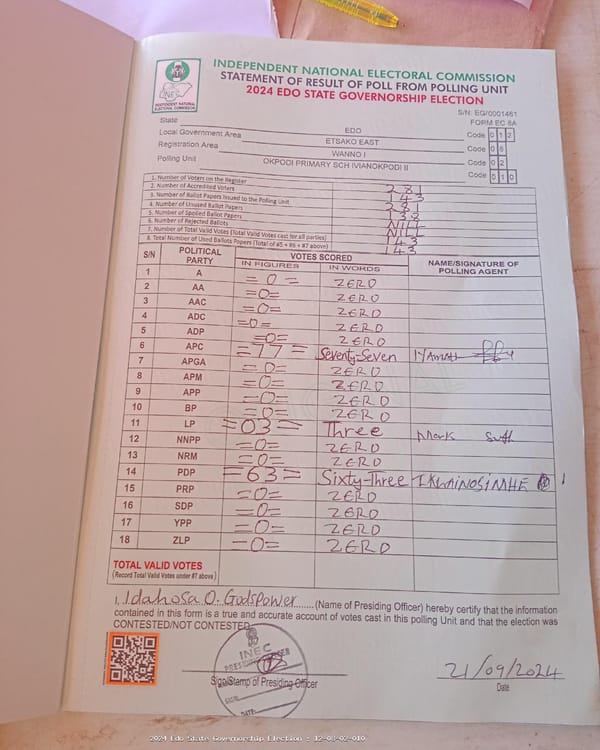 INDEPENDENT NATIONAL ELECTORAL COMMISSION
STATEMENT OF RESULT OF POLL FROM POLLING UNIT
2024 EDO STATE GOVERNORSHIP ELECTION
INEC
INDEPENDENT NATIONAL ELECTORAL COMMISSION
S/N: EG/0001461
FORM EC 8A
State EDO Code 012
Local Government Area ETSAKO EAST Code 08
Registration Area WANNO I Code 02
Polling Unit OKPODI PRIMARY SCH IVIANOKPODI II Code 010
1. Number of Voters on the Register 281
2. Number of Accredited Voters 143
3. Number of Ballot Papers Issued to the Polling Unit 281
4. Number of Unused Ballot Papers 138
5. Number of Spoiled Ballot Papers NILL
6. Number of Rejected Ballots
7. Number of Total Valid Votes (Total Valid Votes cast for all parties) 143
8. Total Number of Used Ballots Papers (Total of #5 + #6 + #7 above) 143
S/N POLITICAL PARTY VOTES SCORED NAME/SIGNATURE OF POLLING AGENT
IN FIGURES IN WORDS
1 A =0= ZERO
2 AA =0= ZERO
3 AAC =0= ZERO
4 ADC =0= ZERO
5 ADP =0= ZERO
6 APC =77= Seventy-Seven
7 APGA =0= ZERO
8 APM =0= ZERO
9 APP =0= ZERO
10 BP =0= ZERO
11 LP =03= Three Mark
12 NNPP =0= ZERO
13 NRM =0= ZERO
14 PDP =63= Sixty-Three
15 PRP =0= ZERO
16 SDP =0= ZERO
17 YPP =0= ZERO
18 ZLP =0= ZERO
TOTAL VALID VOTES
(Record Total Valid Votes under #7 above)
I, Idahosa O. Godspower (Name of Presiding Officer) hereby certify that the information
contained in this form is a true and accurate account of votes cast in this polling Unit and that the election was
CONTESTED/NOT CONTESTED
INEC
PRESIDING OFFICER
SIGN:
DATE:
Sign/Stamp of Presiding Officer
21/09/2024
Date
2024 Edo State Governorship Election : 12-08-02-010